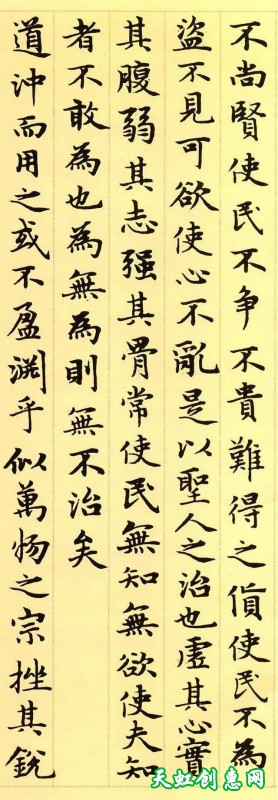 不尚賢使民不争不貴難得之貨使民不為
盜不見可欲使心不亂是以聖人之治也虛其心實
其腹弱其志强其骨常使民無知無欲使夫知
者不敢為也為無為則無不治矣
道沖而用之或不盈淵乎似萬物之宗挫其銳
天虹创惠网